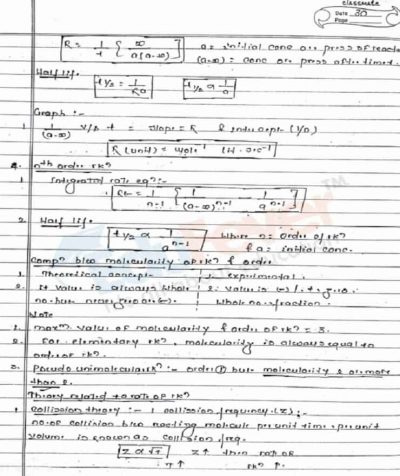 classmate
Date 30
Page
R = 1/t { x / a(a-x) } a = initial conc or press of react
(a-x) = conc or press after time t.
Half life.
t 1/2 = 1/Ra t 1/2 ∝ 1/a
Graph :-
1. 1/(a-x) v/s t = slope = R & intercept (1/a)
R(unit) = mole⁻¹ lit. sec⁻¹
4. nth order rxn
1. Integrated rate eqn :-
Rt = 1/n-1 [ 1/(a-x)ⁿ⁻¹ - 1/aⁿ⁻¹ ]
2. Half life.
t 1/2 ∝ 1/aⁿ⁻¹ where n = order of rxn
& a = initial conc.
Compn b/w molecularity of rxn & order
1. Theoretical concept 1. experimental.
2. It value is always whole 2. value is (-), +, zero.
no. but never zero or (-). whole no. fraction.
Note
1. maxm value of molecularity & order of rxn = 3.
2. For elementary rxn, molecularity is always equal to
order of rxn.
3. Pseudo unimolecular rxn :- order ① but molecularity 2 or more
than 2.
Theory related to rate of rxn
1. Collision theory :- 1 collision frequency (z) :-
no. of collision b/w reacting molecule per unit time per unit
volume is known as collision freq.
z ∝ √T z↑ then rate of
T↑ rxn ↑.